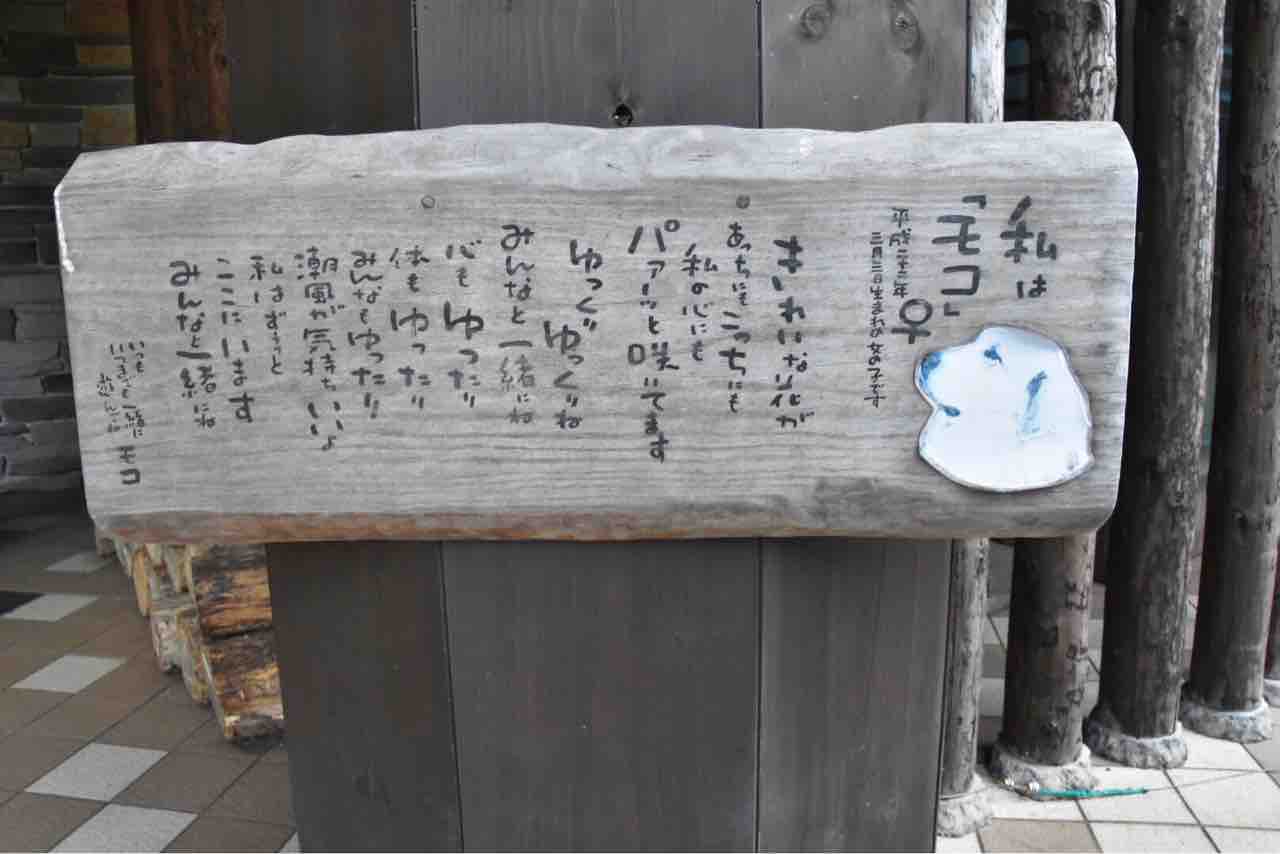 私は
「モコ」♀
平成二十二年
三月三日生まれの女の子です
きれいな花が
あっちにもこっちにも
私の心にも
パァーッと咲いてます
ゆっくりゆっくりね
みんなと一緒にね
心もゆったり
体もゆったり
みんなもゆったり
潮風が気持ちいいよ
私はずぅっと
ここにいます
みんなと一緒にね
いつも
いつまでも一緒に
遊んでね
モコ